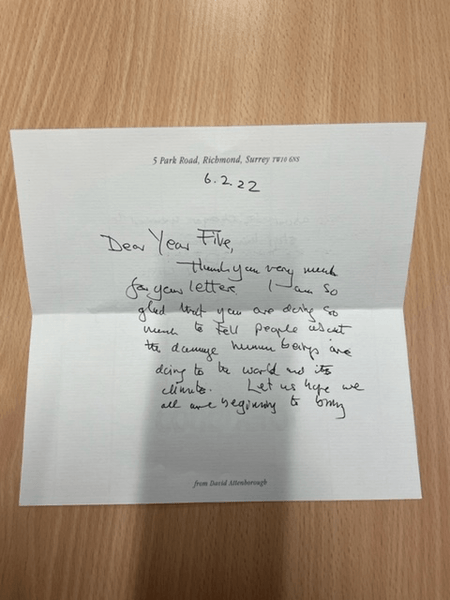 5 Park Road, Richmond, Surrey TW10 6NS
6.2.22
Dear Year Five,
Thank you very much
for your letters I am so
glad that you are doing so
much to tell people about
the damage human beings are
doing to the world and its
climate. Let us hope we
all are beginning to bring
from David Attenborough